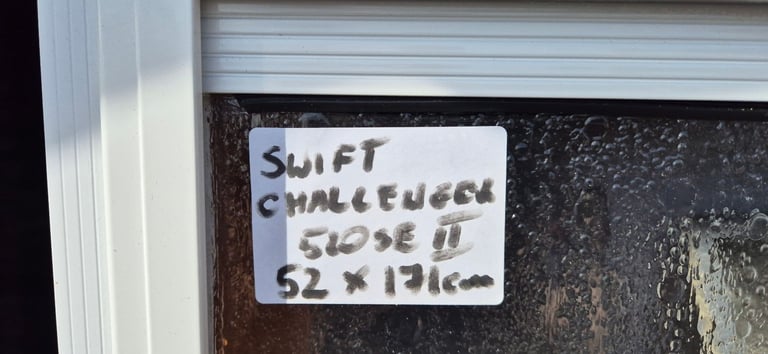 SWIFT
CHALLENGER
510SE II
52 x 171cm